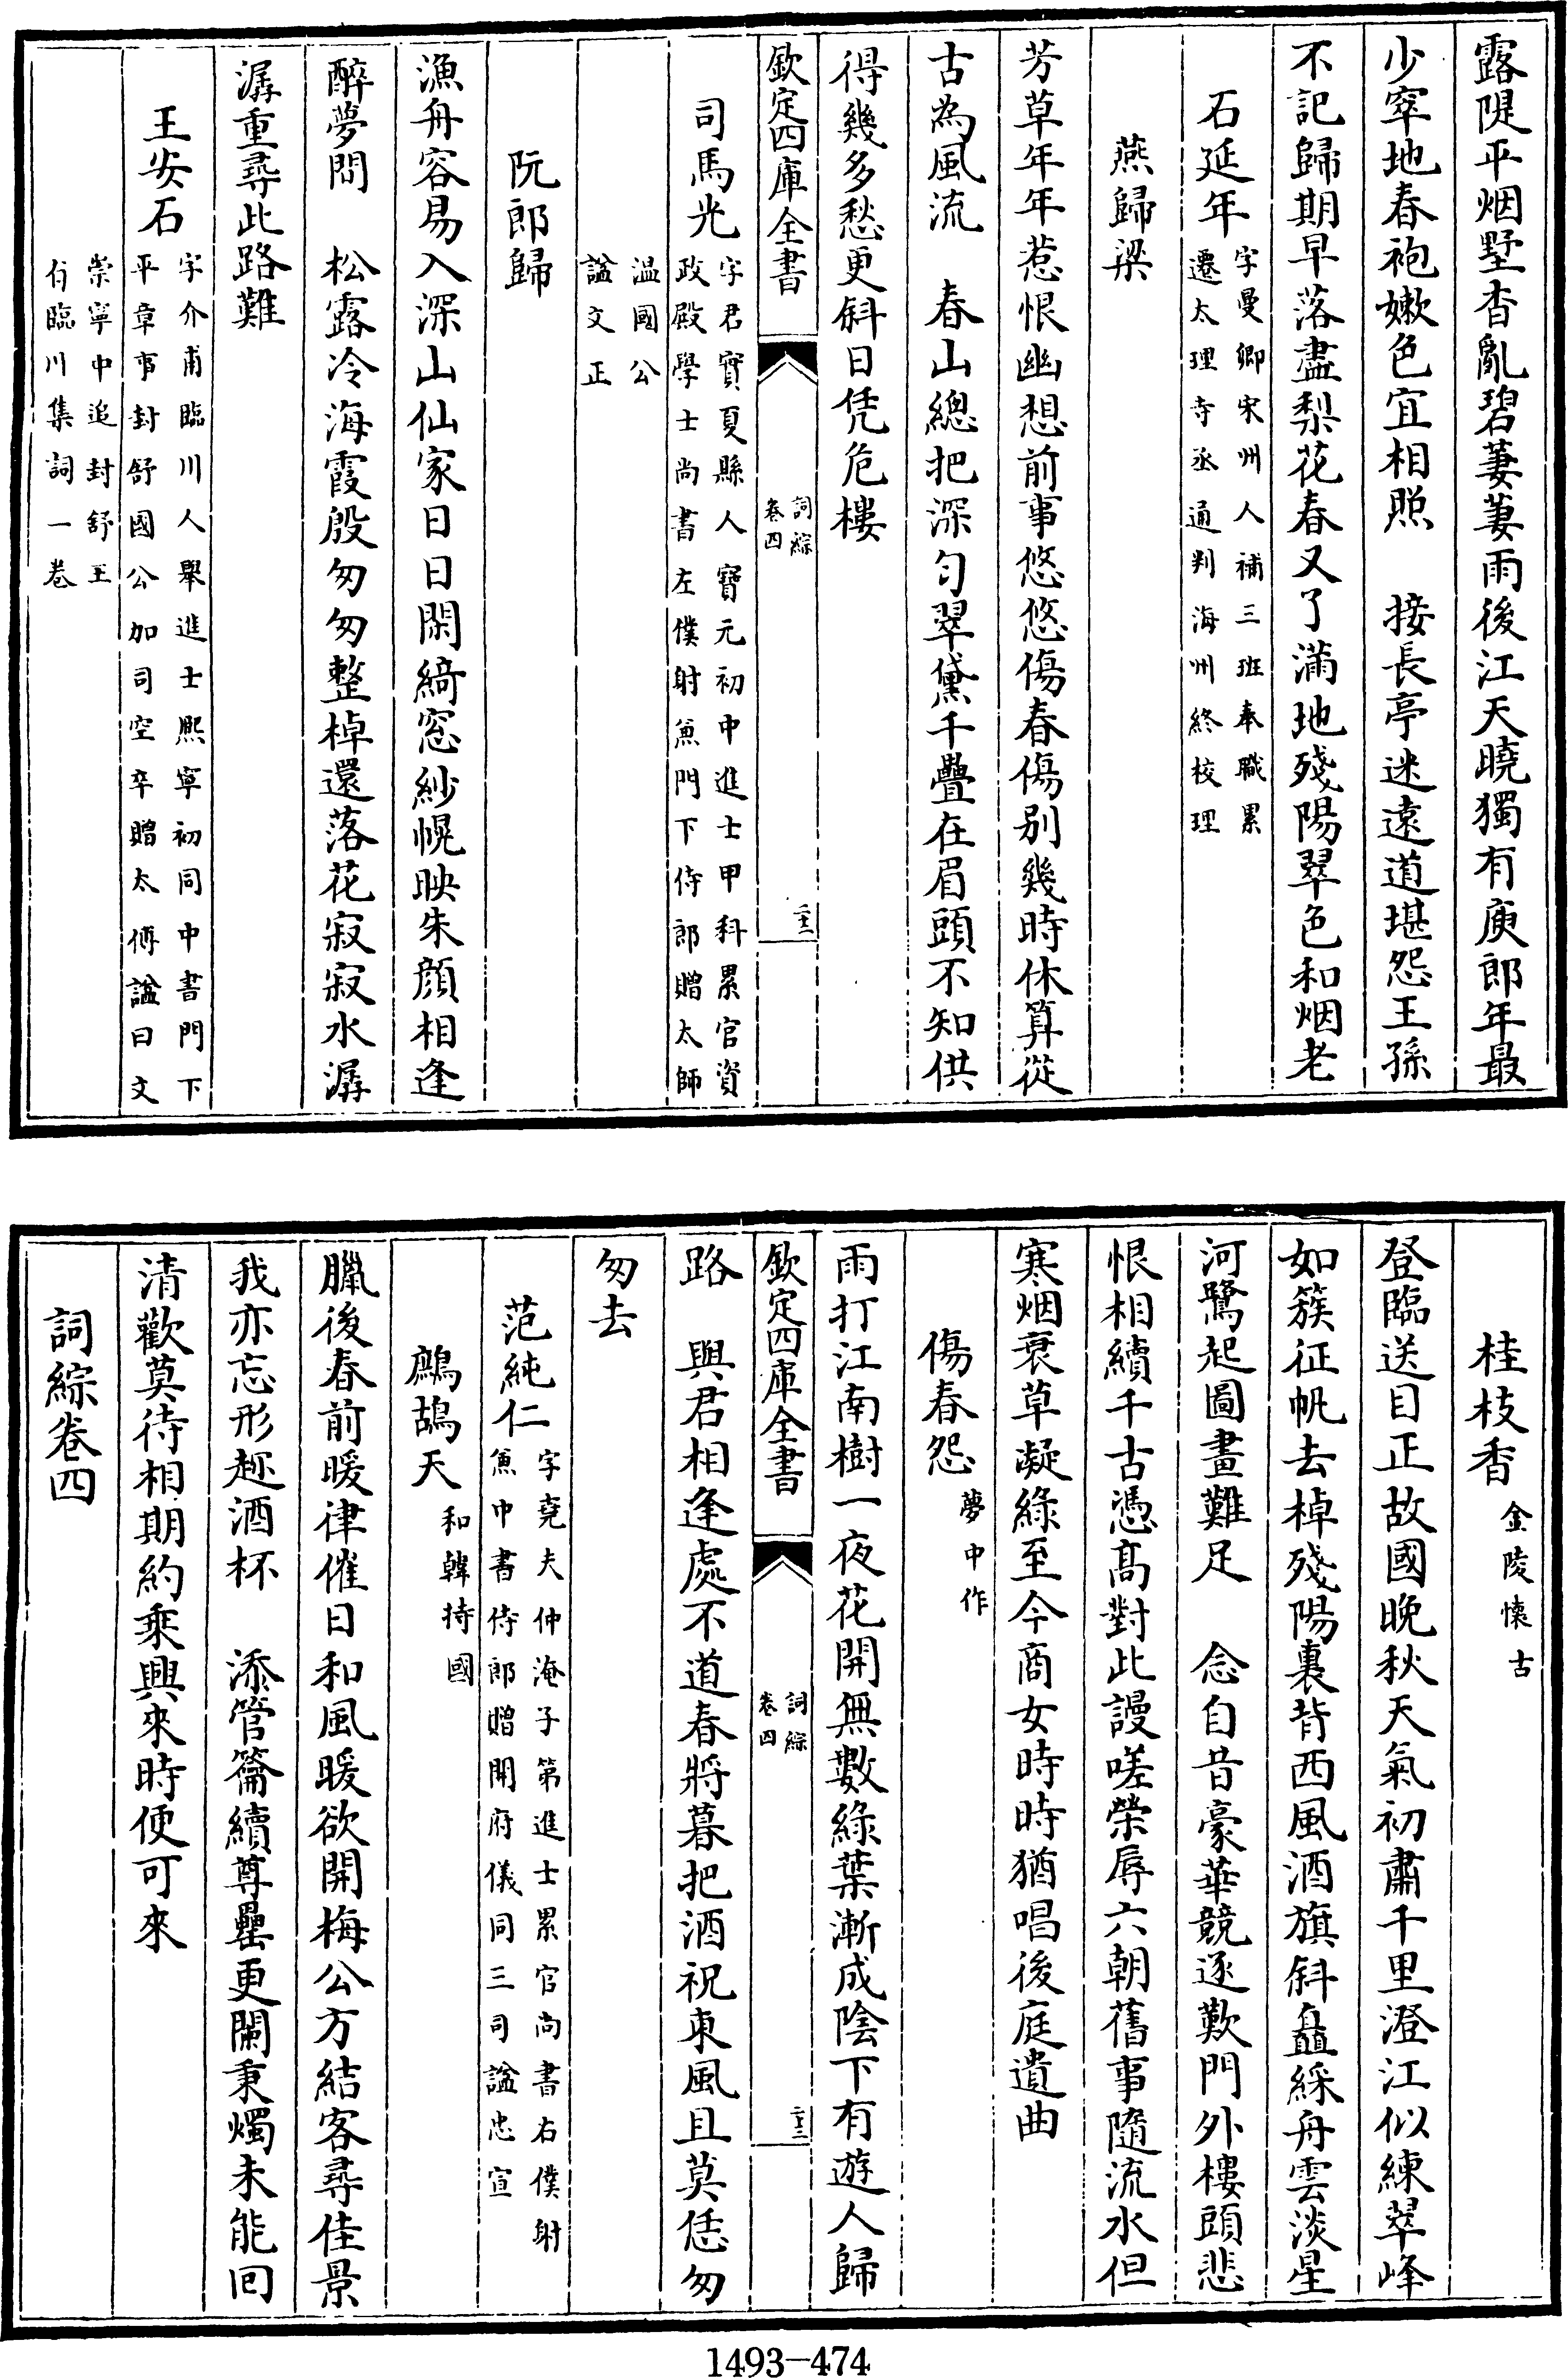 露隄平烟墅杳亂碧萋萋雨後江天曉獨有庾郎年最
少窣地春袍嫩色宜相照　接長亭迷遠道堪怨王孫
不記歸期早落盡梨花春又了滿地殘陽翠色和烟老
石延年字曼卿宋州人補三班奉職累
遷太理寺丞通判海州終校理
燕歸梁
芳草年年惹恨幽想前事悠悠傷春傷别幾時休算從
古為風流　春山總把深勻翠黛千疊在眉頭不知供
得幾多愁更斜日凭危樓
欽定四庫全書
詞綜
卷四
二十三
司馬光字君實夏縣人寶元初中進士甲科累官資
政殿學士尚書左僕射兼門下侍郎贈太師
温國公
諡文正
阮郎歸
漁舟容易入深山仙家日日閑綺窓紗幌映朱顔相逢
醉夢間　松露冷海霞殷匆匆整棹還落花寂寂水潺
潺重尋此路難
王安石字介甫臨川人舉進士熙寧初同中書門下
平章事封舒國公加司空卒贈太傅諡曰文
崇寧中追封舒王
有臨川集詞一卷
桂枝香金陵懷古
登臨送目正故國晚秋天氣初肅千里澄江似練翠峰
如簇征帆去棹殘陽裏背西風酒旗斜矗綵舟雲淡星
河鷺起圖畫難足　念自昔豪華競逐歎門外樓頭悲
恨相續千古憑高對此謾嗟榮辱六朝舊事隨流水但
寒烟衰草凝綠至今商女時時猶唱後庭遺曲
傷春怨夢中作
雨打江南樹一夜花開無數綠葉漸成陰下有遊人歸
欽定四庫全書
詞綜
卷四
二十三
路　與君相逢處不道春將暮把酒祝東風且莫恁匆
匆去
范純仁字堯夫仲淹子第進士累官尚書右僕射
兼中書侍郎贈開府儀同三司諡忠宣
鷓鴣天和韓持國
臘後春前暖律催日和風暖欲開梅公方結客尋佳景
我亦忘形趂酒杯　添管籥續尊罍更闌秉燭未能回
清歡莫待相期約乘興來時便可來
詞綜卷四
1493-474